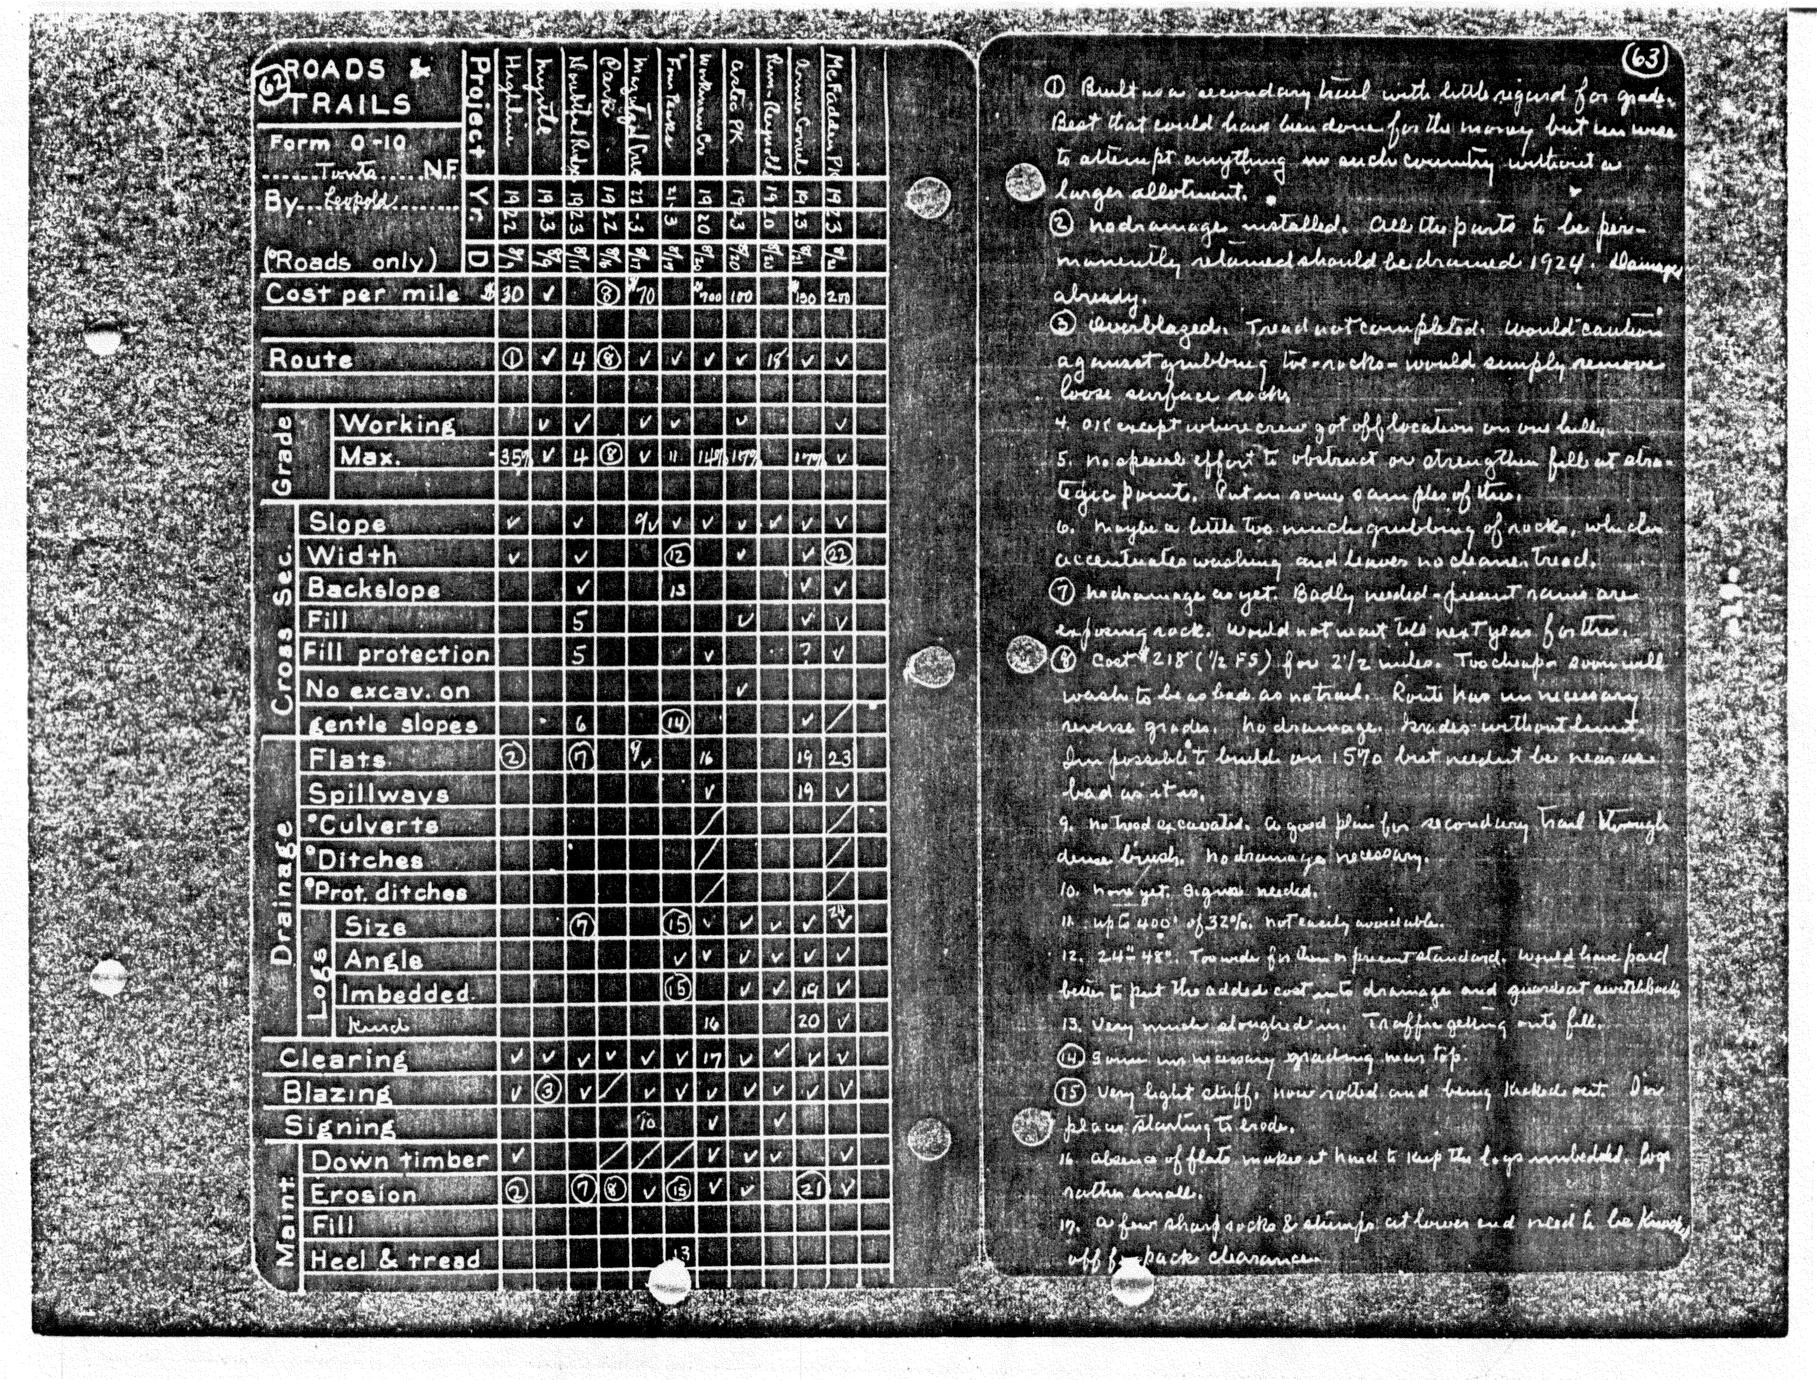 62
ROADS &
TRAILS
Form O-10
Tonto N.F.
By Leopold
(°Roads only)
Project Highline Myrtle Park Workman Cr McFadden Pk
Yr. 1922 1923 1923 1922 22-3 21-3 1920 1923 1920 1923 1923
D 8/9 8/9 8/11 8/16 8/17 8/17 8/20 8/20 8/21 8/21 8/21
Cost per mile $30 ✓ ⑧ $70 $700 100 $190 200
Route ① ✓ 4 ⑧ ✓ ✓ ✓ ✓ 18 ✓ ✓
Grade
Working ✓ ✓ ✓ ✓ ✓ ✓
Max. 35% ✓ 4 ⑧ ✓ 11 14% 17% 17% ✓
Cross Sec.
Slope ✓ ✓ 9✓ ✓ ✓ ✓ ✓ ✓ ✓
Width ✓ ✓ ⑫ ✓ ✓ ㉒
Backslope ✓ 13 ✓ ✓
Fill 5 ✓ ✓ ✓
Fill protection 5 ✓ ? ✓
No excav. on ✓
gentle slopes 6 ⑭ ✓ /
Drainage
Flats ② ⑦ 9✓ 16 19 23
Spillways ✓ 19 ✓
°Culverts / /
°Ditches / /
°Prot. ditches / /
Logs
Size ⑦ ⑮ ✓ ✓ ✓ ✓ 24✓
Angle ✓ ✓ ✓ ✓ ✓ ✓
Imbedded ⑮ ✓ ✓ 19 ✓
Kind 16 20 ✓
Clearing ✓ ✓ ✓ ✓ ✓ ✓ 17 ✓ ✓ ✓ ✓
Blazing ✓ ③ ✓ / ✓ ✓ ✓ ✓ ✓ ✓ ✓
Signing 10 ✓ ✓
Maint.
Down timber ✓ / / / ✓ ✓ ✓ ✓
Erosion ② ⑦ ⑧ ✓ ⑮ ✓ ✓ ㉑ ✓
Fill
Heel & tread 13
63
① Built as a secondary trail with little regard for grade.
Best that could have been done for the money but unwise
to attempt anything in such country without a
larger allotment.
② No drainage installed. All the parts to be per-
manently retained should be drained 1924. Damaged
already.
③ Overblazed. Tread not completed. Would caution
against grubbing toe-rocks - would simply remove
loose surface rocks.
4. OK except where crew got off location on one hill.
5. No special effort to obstruct or strengthen fill at stra-
tegic points. Put in some samples of this.
6. Maybe a little too much grubbing of rocks, which
accentuates washing and leaves no cleaner tread.
⑦ No drainage as yet. Badly needed - present rains are
exposing rock. Would not wait till next year for this.
⑧ Cost $218 (1/2 FS) for 2 1/2 miles. Too cheap - soon will
wash to be as bad as no trail. Route has unnecessary
reverse grades. No drainage. Grades without limit.
Impossible to build on 15% but needn't be near as
bad as it is.
9. No tread excavated. A good plan for secondary trail through
dense brush. No drainage necessary.
10. None yet. Signs needed.
11. Up to 400' of 32%. Not easily avoidable.
12. 24"-48". Too wide for them or present standard. Would have paid
better to put the added cost into drainage and guards at switchbacks
13. Very much sloughed in. Traffic getting onto fill.
⑭ Some unnecessary grading near top
⑮ Very light stuff, now rotted and being kicked out. In
places starting to erode.
16. Absence of flats makes it hard to keep the logs imbedded. Logs
rather small.
17. A few sharp rocks & stumps at lower end need to be knocked
off for pack clearance